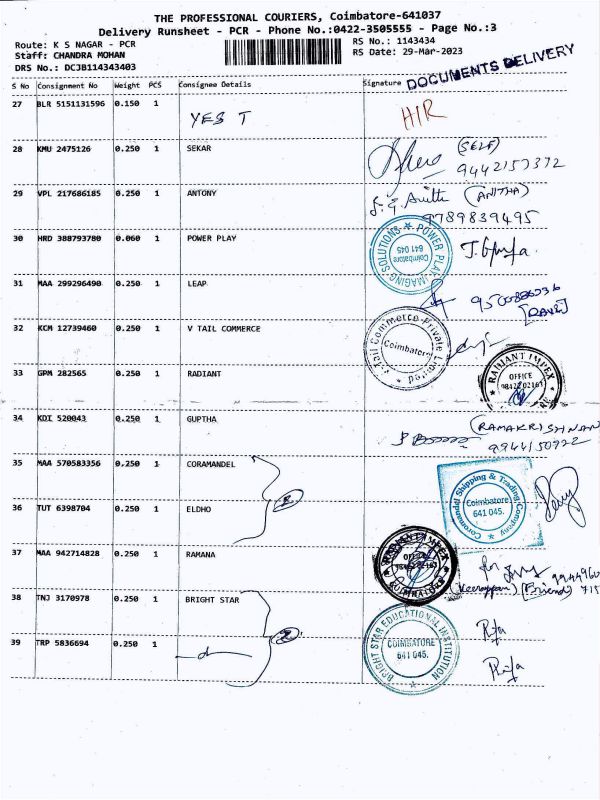 THE PROFESSIONAL COURIERS, Coimbatore-641037
Delivery Runsheet - PCR - Phone No.:0422-3505555 - Page No.:3
Route: K S NAGAR - PCR
RS No.: 1143434
Staff: CHANDRA MOHAN
RS Date: 29-Mar-2023
DRS No.: DCJB114343403
DOCUMENTS DELIVERY
S No Consignment No Weight PCS Consignee Details Signature
27 BLR 5151131596 0.150 1 YES T HIR
28 KMU 2475126 0.250 1 SEKAR (SELF)
9442157372
29 VPL 217686185 0.250 1 ANTONY (ANITHA)
9789839495
30 HRD 388793780 0.060 1 POWER PLAY
POWER PLAY IMAGING SOLUTIONS
Coimbatore
641 045
31 MAA 299296490 0.250 1 LEAP
[RAVI]
32 KCM 12739460 0.250 1 V TAIL COMMERCE
V-Tail Commerce Private Limited
Coimbatore
33 GPM 282565 0.250 1 RADIANT
RADIANT IMPEX
OFFICE
34 KDI 520043 0.250 1 GUPTHA (RAMAKRISHNAN)
9944150722
35 MAA 570583356 0.250 1 CORAMANDEL
Coromandel Shipping & Trading Company
Coimbatore
641 045.
36 TUT 6398704 0.250 1 ELDHO
37 MAA 942714828 0.250 1 RAMANA
RADIANT IMPEX
OFFICE
COIMBATORE
for
(Veerappan) (Friend)
38 TNJ 3170978 0.250 1 BRIGHT STAR
BRIGHT STAR EDUCATIONAL INSTITUTION
COIMBATORE
641 045.
39 TRP 5836694 0.250 1